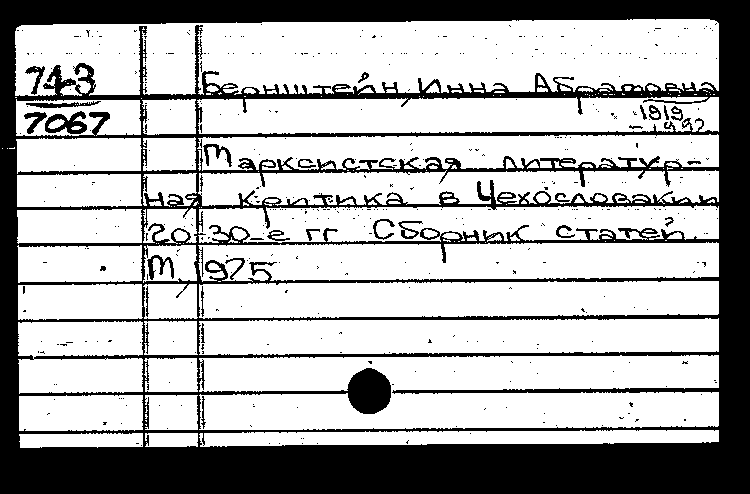 743
7067
Бернштейн, Инна Абрамовна
1919
- 1992
Марксистская литератур-
ная критика в Чехословакии
20-30-е гг Сборник статей.
М, 1975